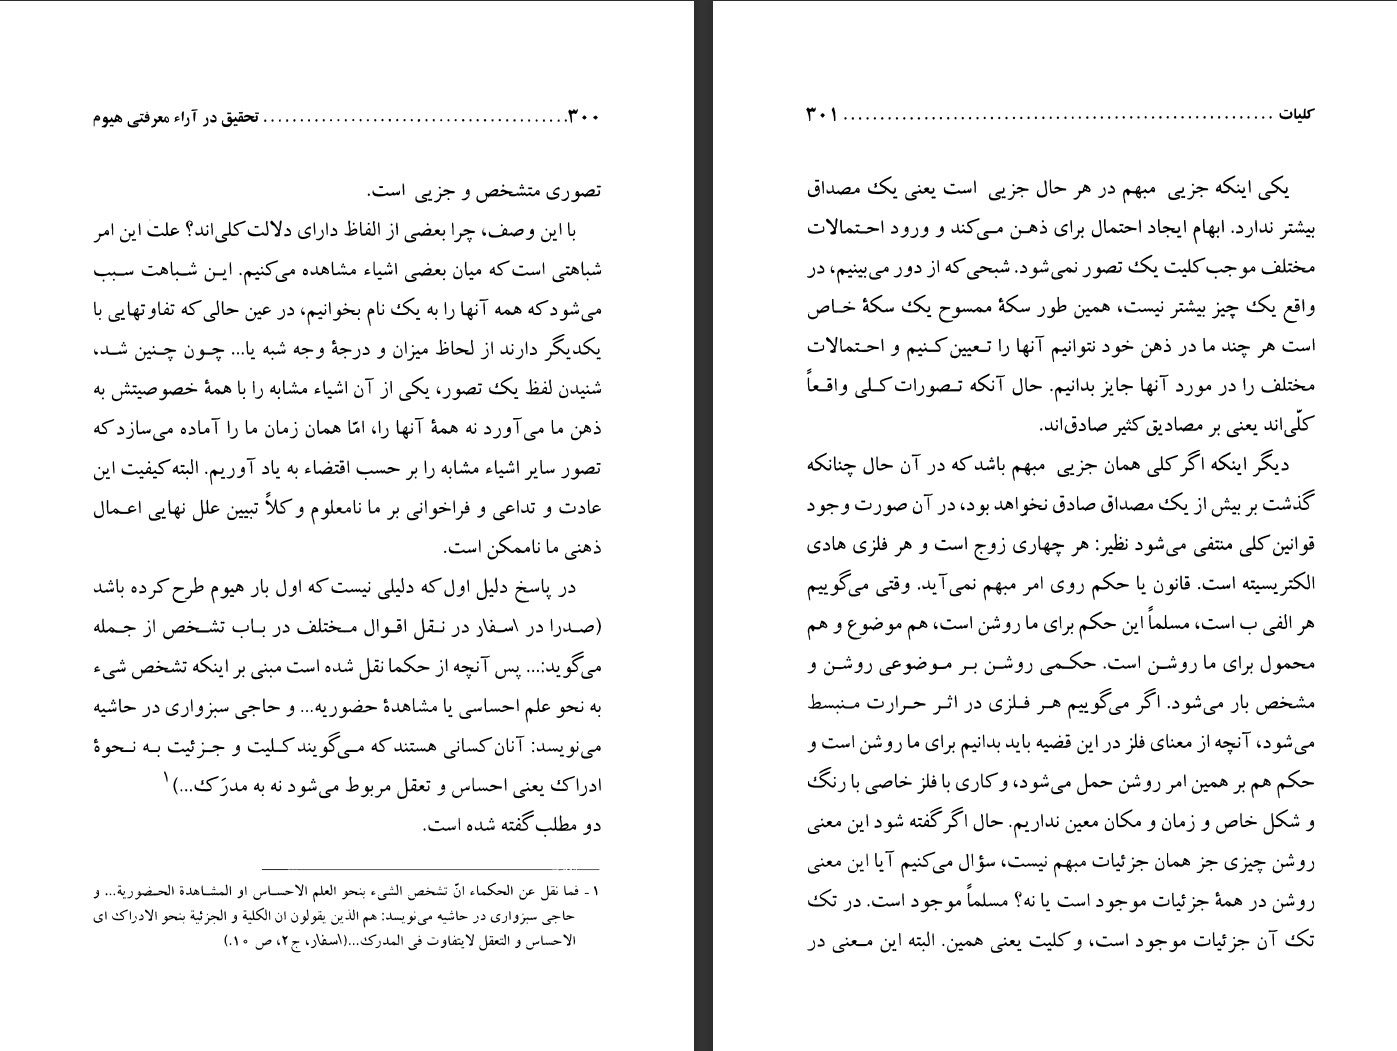 ۳۰۰........................................ تحقیق در آراء معرفتی هیوم
تصوری متشخص و جزیی است.
با این وصف، چرا بعضی از الفاظ دارای دلالت کلی‌اند؟ علت این امر
شباهتی است که میان بعضی اشیاء مشاهده می‌کنیم. این شباهت سبب
می‌شود که همه آنها را به یک نام بخوانیم، در عین حالی که تفاوتهایی با
یکدیگر دارند از لحاظ میزان و درجهٔ وجه شبه یا... چون چنین شد،
شنیدن لفظ یک تصور، یکی از آن اشیاء مشابه را با همهٔ خصوصیتش به
ذهن ما می‌آورد نه همهٔ آنها را، امّا همان زمان ما را آماده می‌سازد که
تصور سایر اشیاء مشابه را بر حسب اقتضاء به یاد آوریم. البته کیفیت این
عادت و تداعی و فراخوانی بر ما نامعلوم و کلاً تبیین علل نهایی اعمال
ذهنی ما ناممکن است.
در پاسخ دلیل اول که دلیلی نیست که اول بار هیوم طرح کرده باشد
(صدرا در اسفار در نقل اقوال مختلف در باب تشخص از جمله
می‌گوید:... پس آنچه از حکما نقل شده است مبنی بر اینکه تشخص شیء
به نحو علم احساسی یا مشاهدهٔ حضوریه... و حاجی سبزواری در حاشیه
می‌نویسد: آنان کسانی هستند که می‌گویند کلیت و جزئیت به نحوهٔ
ادراک یعنی احساس و تعقل مربوط می‌شود نه به مدرَک...)۱
دو مطلب گفته شده است.
۱- فما نقل عن الحکماء انّ تشخص الشیء بنحو العلم الاحساس او المشاهدة الحضوریة... و
حاجی سبزواری در حاشیه می‌نویسد: هم الذین یقولون ان الکلیة و الجزئیة بنحو الادراک ای
الاحساس و التعقل لایتفاوت فی المدرک...(اسفار، ج۲، ص ۱۰.)
کلیات ........................................................ ۳۰۱
یکی اینکه جزیی مبهم در هر حال جزیی است یعنی یک مصداق
بیشتر ندارد. ابهام ایجاد احتمال برای ذهن می‌کند و ورود احتمالات
مختلف موجب کلیت یک تصور نمی‌شود. شبحی که از دور می‌بینیم، در
واقع یک چیز بیشتر نیست، همین طور سکهٔ ممسوح یک سکهٔ خاص
است هر چند ما در ذهن خود نتوانیم آنها را تعیین کنیم و احتمالات
مختلف را در مورد آنها جایز بدانیم. حال آنکه تصورات کلی واقعاً
کلّی‌اند یعنی بر مصادیق کثیر صادق‌اند.
دیگر اینکه اگر کلی همان جزیی مبهم باشد که در آن حال چنانکه
گذشت بر بیش از یک مصداق صادق نخواهد بود، در آن صورت وجود
قوانین کلی منتفی می‌شود نظیر: هر چهاری زوج است و هر فلزی هادی
الکتریسیته است. قانون یا حکم روی امر مبهم نمی‌آید. وقتی می‌گوییم
هر الفی ب است، مسلماً این حکم برای ما روشن است، هم موضوع و هم
محمول برای ما روشن است. حکمی روشن بر موضوعی روشن و
مشخص بار می‌شود. اگر می‌گوییم هر فلزی در اثر حرارت منبسط
می‌شود، آنچه از معنای فلز در این قضیه باید بدانیم برای ما روشن است و
حکم هم بر همین امر روشن حمل می‌شود، و کاری با فلز خاصی با رنگ
و شکل خاص و زمان و مکان معین نداریم. حال اگر گفته شود این معنی
روشن چیزی جز همان جزئیات مبهم نیست، سؤال می‌کنیم آیا این معنی
روشن در همهٔ جزئیات موجود است یا نه؟ مسلماً موجود است. در تک
تک آن جزئیات موجود است، و کلیت یعنی همین. البته این معنی در